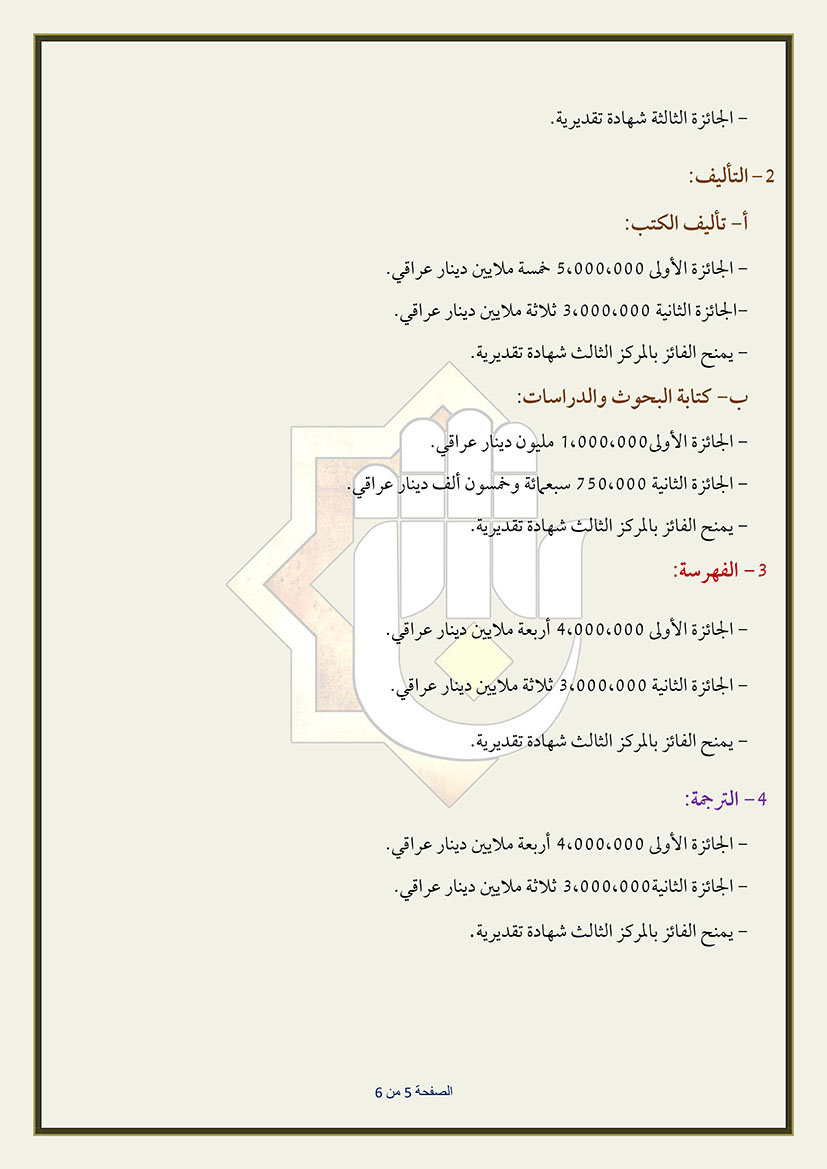 – الجائزة الثالثة شهادة تقديرية.
2– التأليف:
أ– تأليف الكتب:
– الجائزة الأولى 5،000،000 خمسة ملايين دينار عراقي.
–الجائزة الثانية 3،000،000 ثلاثة ملايين دينار عراقي.
– يمنح الفائز بالمركز الثالث شهادة تقديرية.
ب– كتابة البحوث والدراسات:
– الجائزة الأولى1،000،000 مليون دينار عراقي.
– الجائزة الثانية 750،000 سبعمائة وخمسون ألف دينار عراقي.
– يمنح الفائز بالمركز الثالث شهادة تقديرية.
3– الفهرسة:
– الجائزة الأولى 4،000،000 أربعة ملايين دينار عراقي.
– الجائزة الثانية 3،000،000 ثلاثة ملايين دينار عراقي.
– يمنح الفائز بالمركز الثالث شهادة تقديرية.
4– الترجمة:
– الجائزة الأولى 4،000،000 أربعة ملايين دينار عراقي.
– الجائزة الثانية3،000،000 ثلاثة ملايين دينار عراقي.
– يمنح الفائز بالمركز الثالث شهادة تقديرية.
الصفحة 5 من 6